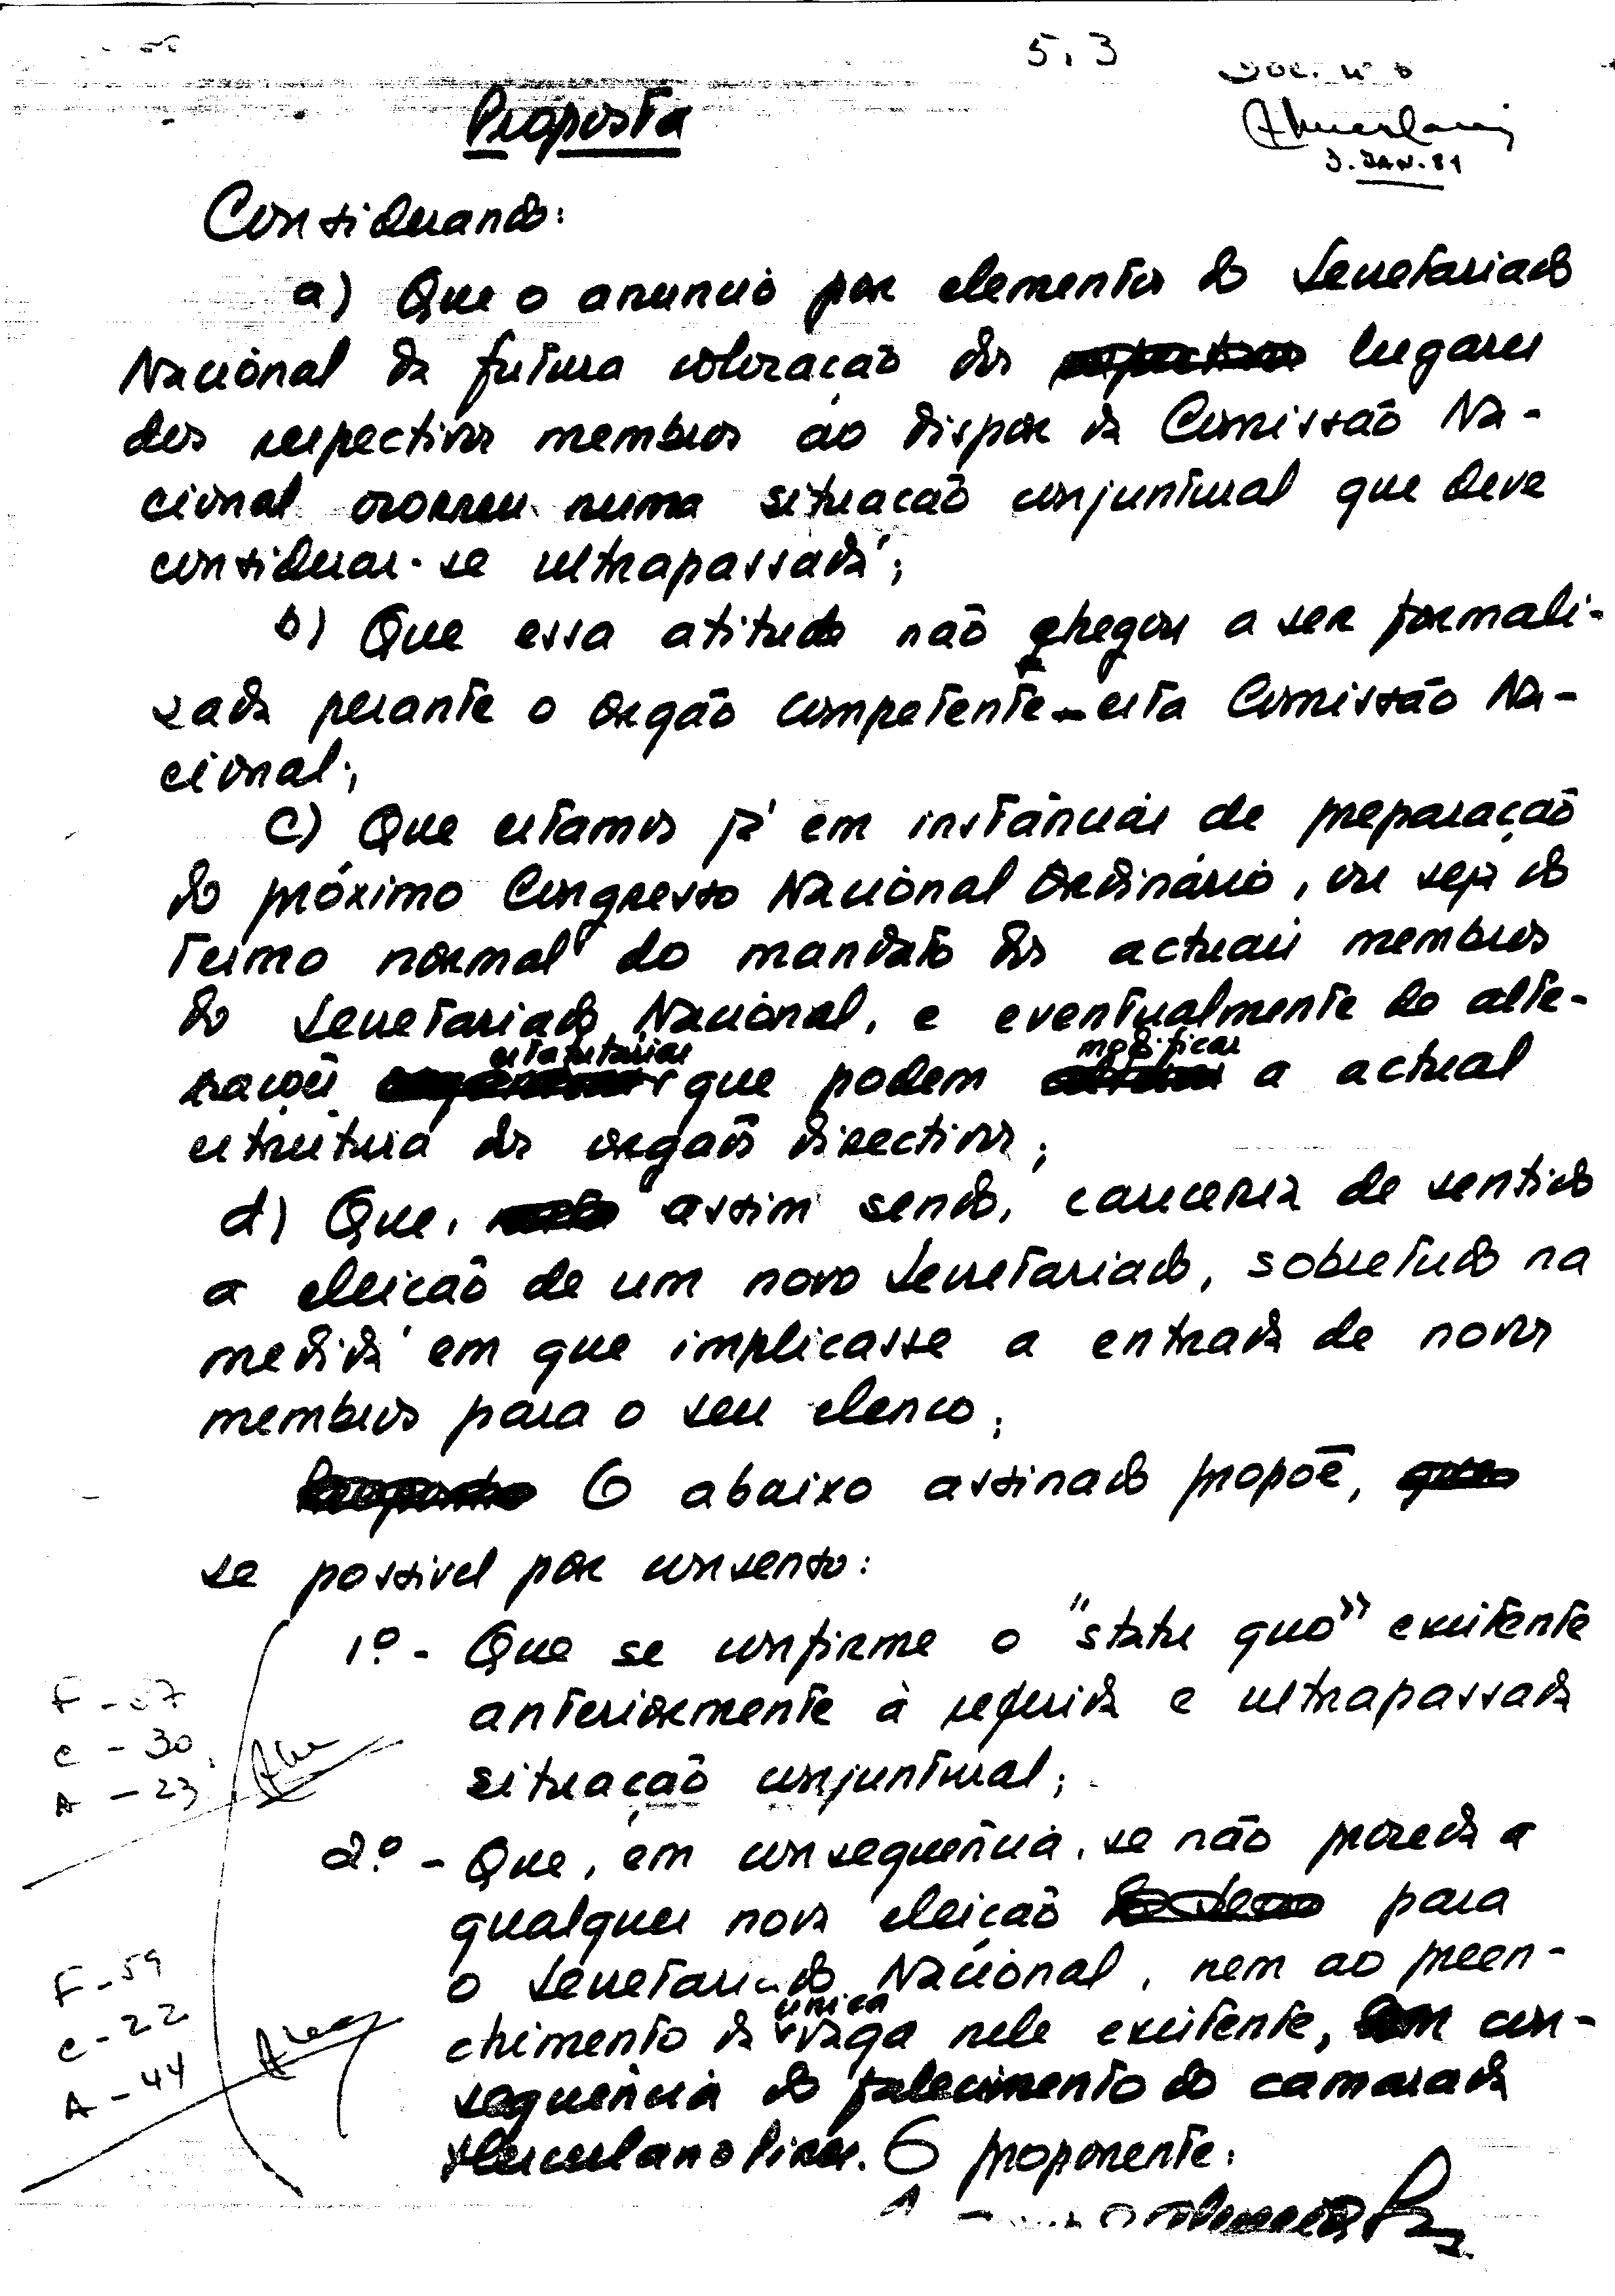 5.3
Doc. nº 6
3. JAN. 81
Proposta
Considerando:
a) Que o anuncio por elementos do Secretariado
Nacional da futura colocação dos lugares
dos respectivos membros ao dispor da Comissão Na-
cional ocorreu numa situação conjuntural que deve
considerar-se ultrapassada;
b) Que essa atitude não chegou a ser formali-
zada perante o orgão competente - esta Comissão Na-
cional;
c) Que estamos já em instâncias de preparação
do próximo Congresso Nacional Ordinário, ou seja do
termo normal do mandato dos actuais membros
do Secretariado Nacional, e eventualmente de alte-
rações estatutárias que podem modificar a actual
estrutura dos orgãos directivos;
d) Que, assim sendo, careceria de sentido
a eleição de um novo Secretariado, sobretudo na
medida em que implicasse a entrada de novos
membros para o seu elenco;
O abaixo assinado propõe,
se possivel por consenso:
1º - Que se confirme o "statu quo" existente
anteriormente à referida e ultrapassada
situação conjuntural;
F - 57
C - 30
A - 23
2.º - Que, em consequência, se não proceda a
qualquer nova eleição para
o Secretariado Nacional, nem ao preen-
chimento da única vaga nele existente, em con-
sequência do falecimento do camarada
Herculano Pires. O proponente:
F - 59
C - 22
A - 44